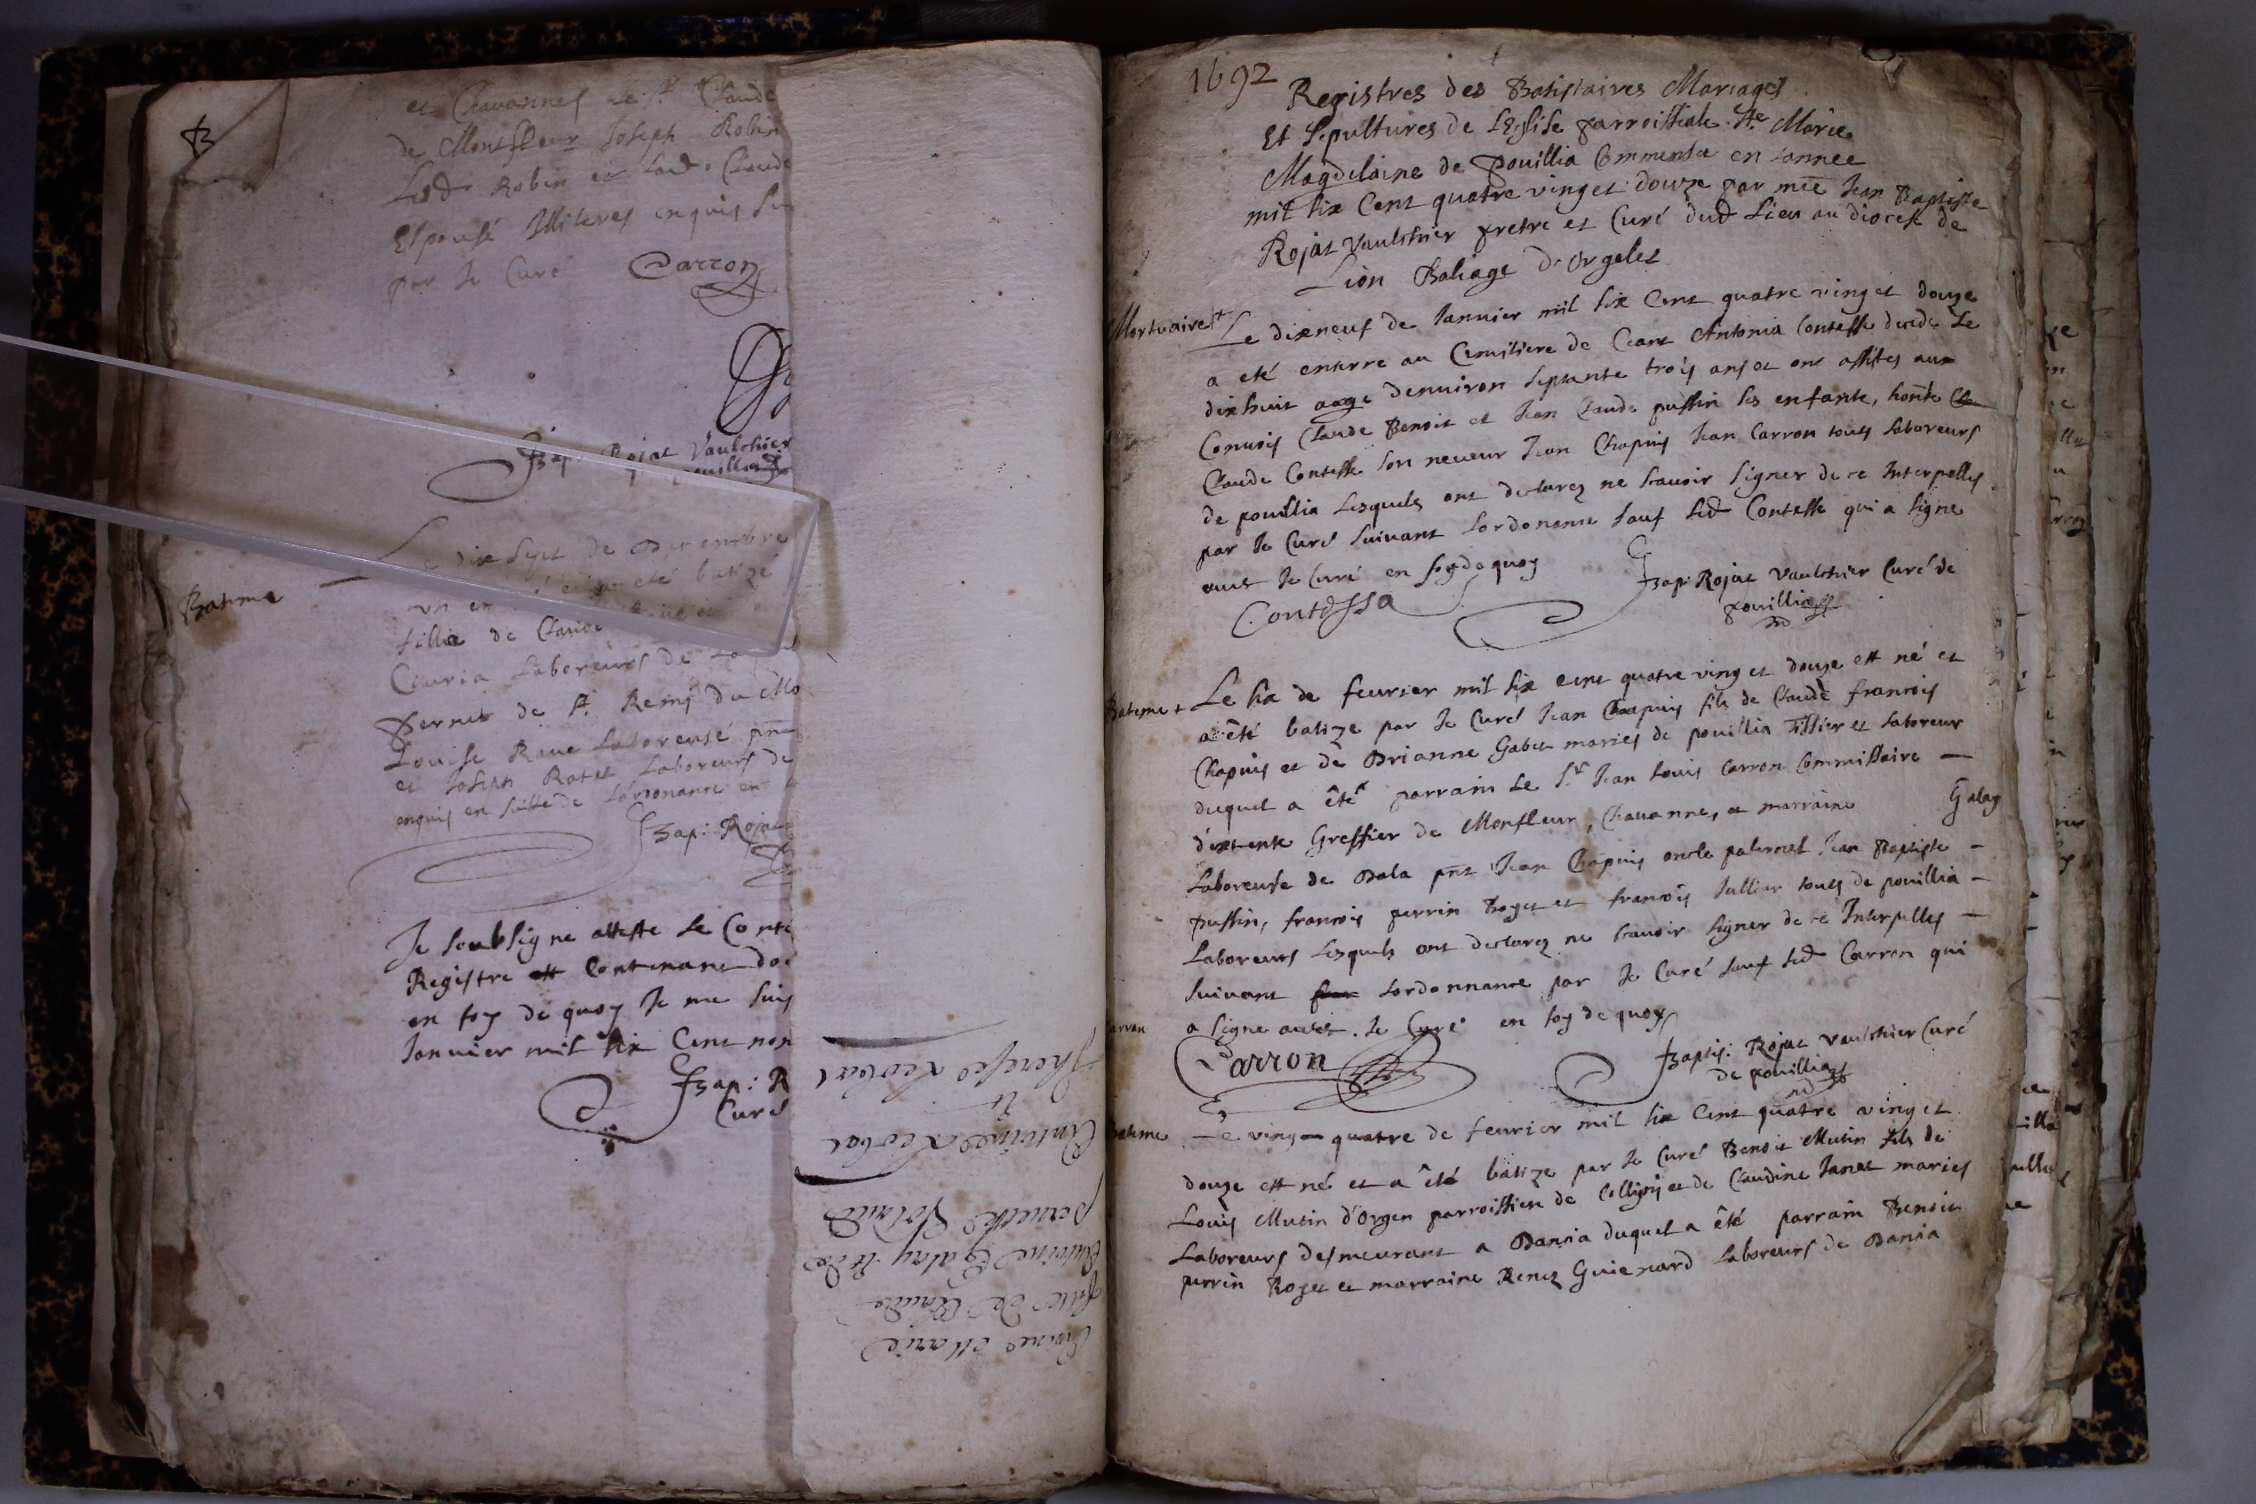 et Chavannes le Sr Claude
de Montfleur Joseph Robin
Led. Robin et Lad. Claude
Espousé Illiteres enquis
par Je Curé Carron
Bap: Rojat Vaulchier
Batéme
Le dix sept de Decembre
eté batizé
fillia de Claude
Curia Laboreurs de
Pernet de St. Remy du Mo
Louise Rave Laboreuse pnt
et Joseph Ratet Laboreurs de
enquis en suitte de Lordonance en
Bap: Rojat
Je soubsigne atteste Le Cont
Registre est Contenant do
en foy de quoy Je me suis
Janvier mil six Cent non
Bap: R
Curé
Anne Marie
fille de Claude
Antoine Galay et de
pernette
Antoine
et
Therese
1692
Registres des Batistaires Mariages
Et Sepultures de LEglise parroissiale Ste Marie
Magdelaine de Pouillia Commensée en Lannee
mil six Cent quatre vingt et douze par mre Jean Baptiste
Rojat Vaulchier pretre et Curé dud Lieu au diocese de
Lion Baliage d'Orgelet
Mortuaire +
Le dixneuf de Janvier mil six Cent quatre vingt et douze
a eté enterre au Cemitiere de Ceans Antonia Contesse decede Le
dixhuit aage denuiron septante trois ans et ont assités aux
Convois Claude Benoit et Jean Claude puffin ses enfants, honte
Claude Contesse son neveur Jean Chapuis Jean Carron touts Laboreurs
de pouillia Lesquels ont declarez ne scavoir signer de ce Interpelles
par Je Curé suivant Lordonanse sauf Led Contesse qui a signe
avec Je Curé en foy de quoy
Contessa
Bap: Rojat Vaulchier Curé de
pouillia
Bateme +
Le six de feurier mil six cent quatre vingt et douze est né et
a été batize par Je Curé Jean Chapuis fils de Claude francois
Chapuis et de Brianne Gabet maries de pouillia Tissier et Laboreur
duquel a été parrain Le Sr Jean Louis Carron Commissaire
d'extente Greffier de Monfleur, Chavannes, et marraine Galay
Laboreuse de Dala pnt Jean Chapuis oncle paternel Jean Baptiste
puffin, francois perrin Roget et francois Jullier touts de pouillia
Laboreurs Lesquels ont declarez ne scavoir signer de ce Interpelles
suivant Lordonnanse par Je Curé sauf Led Carron qui
a signe avec Je Curé en foy de quoy
Carron
Baptis: Rojat Vaulchier Curé
de pouillia
Bateme
Le vingt quatre de feurier mil six Cent quatre vingt et
douze est né et a été batize par Je Curé Benoit Mutin fils de
Louis Mutin d'Orgen parroissien de Colligni et de Claudine Janet maries
Laboreurs desmeurant a Dancia duquel a été parrain Benoit
perrin Roget et marraine Renez Guienard Laboreurs de Dancia